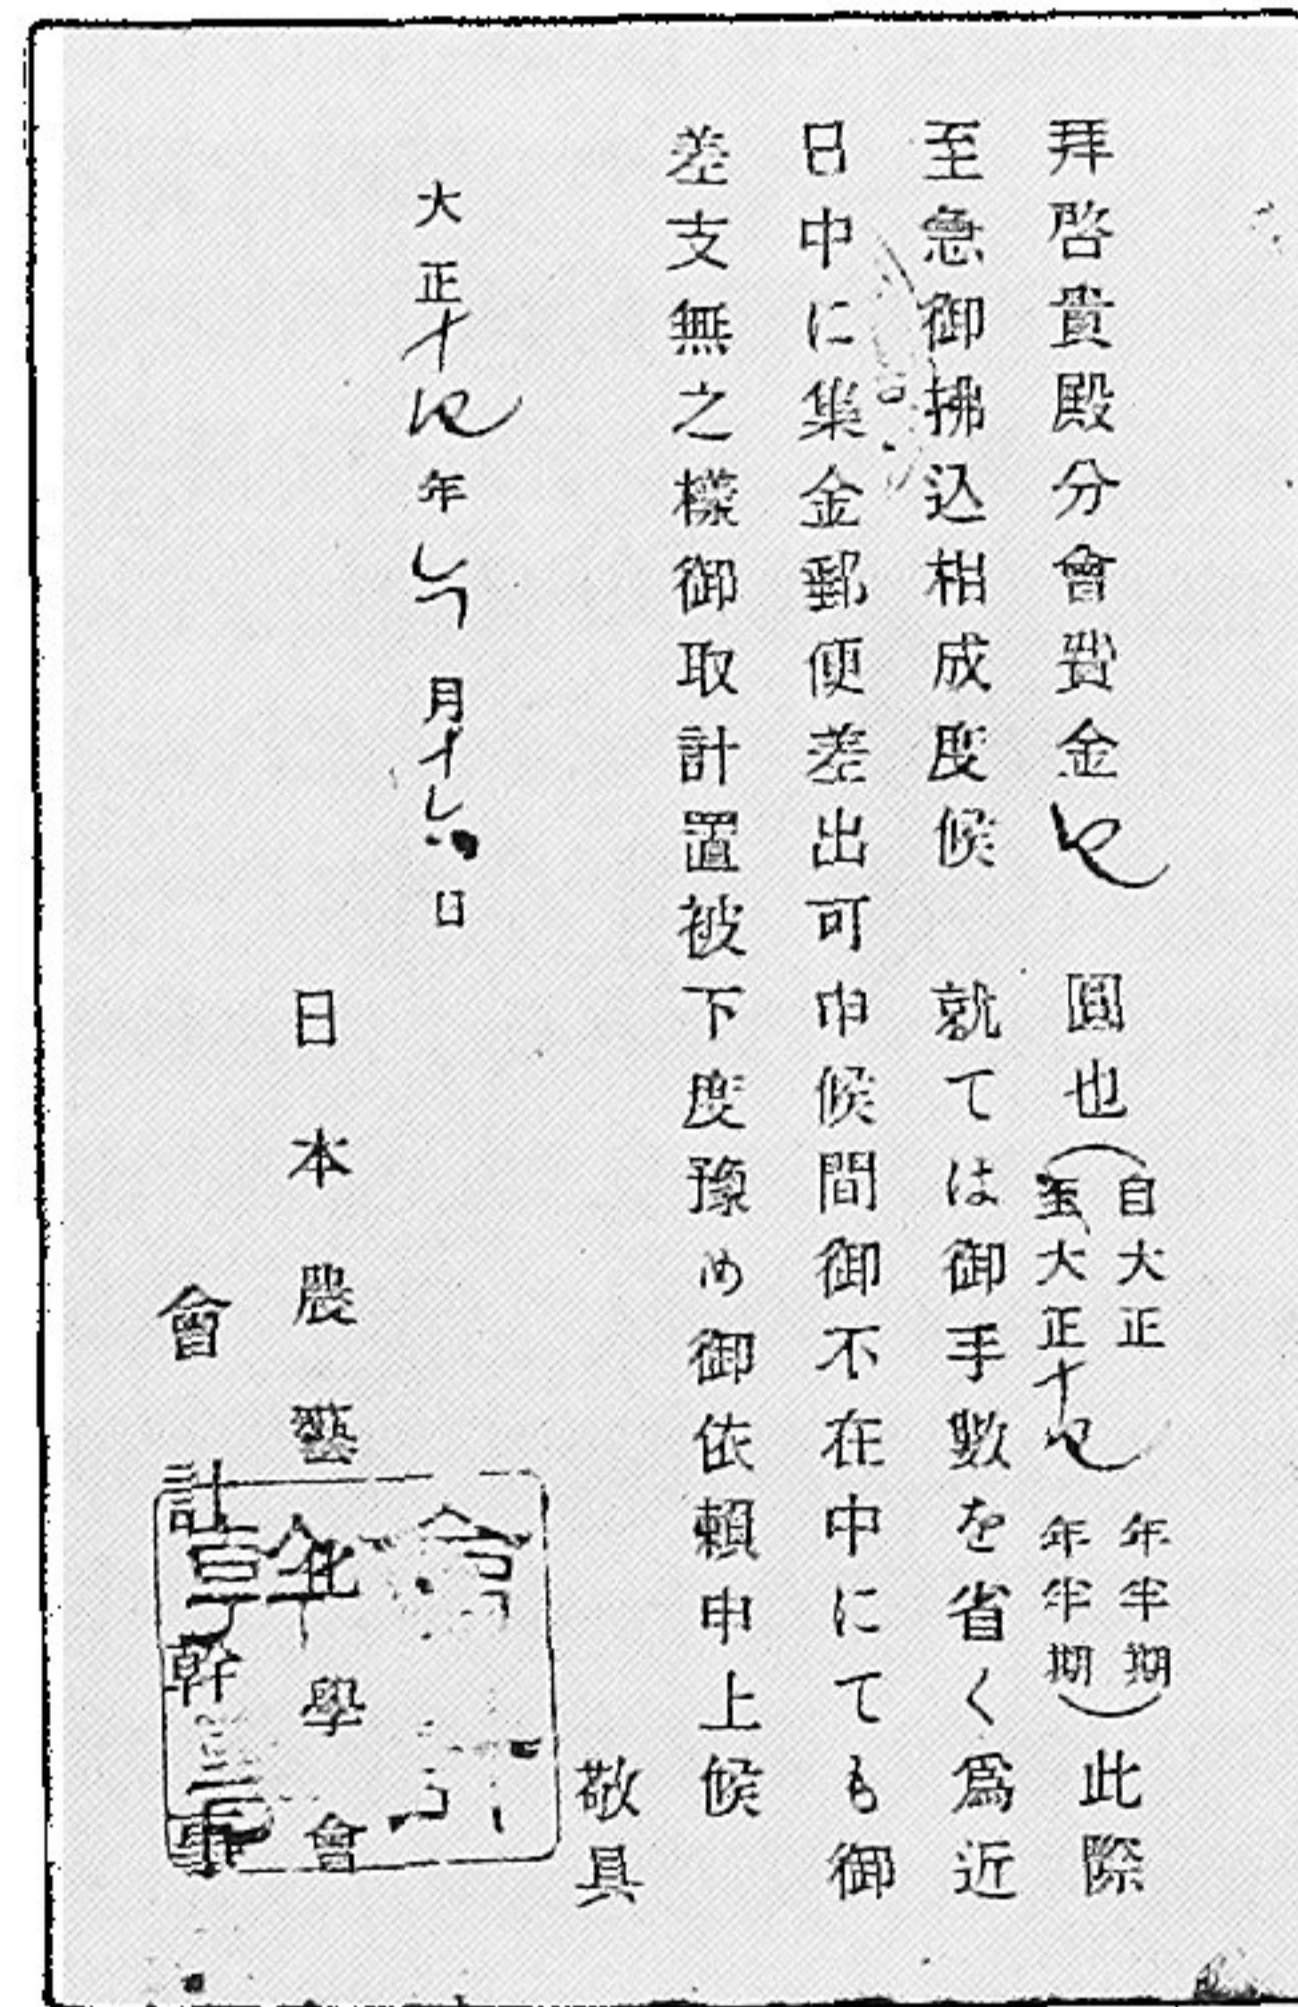 拜啓貴殿分會費金 圓也(自大正 年半期
至大正十四年半期)此際
至急御拂込相成度候 就ては御手數を省く爲近
日中に集金郵便差出可申候間御不在中にても御
差支無之樣御取計置被下度豫め御依賴申上候
敬具
大正十四年 月十 日
日本農藝化學會
會計幹事